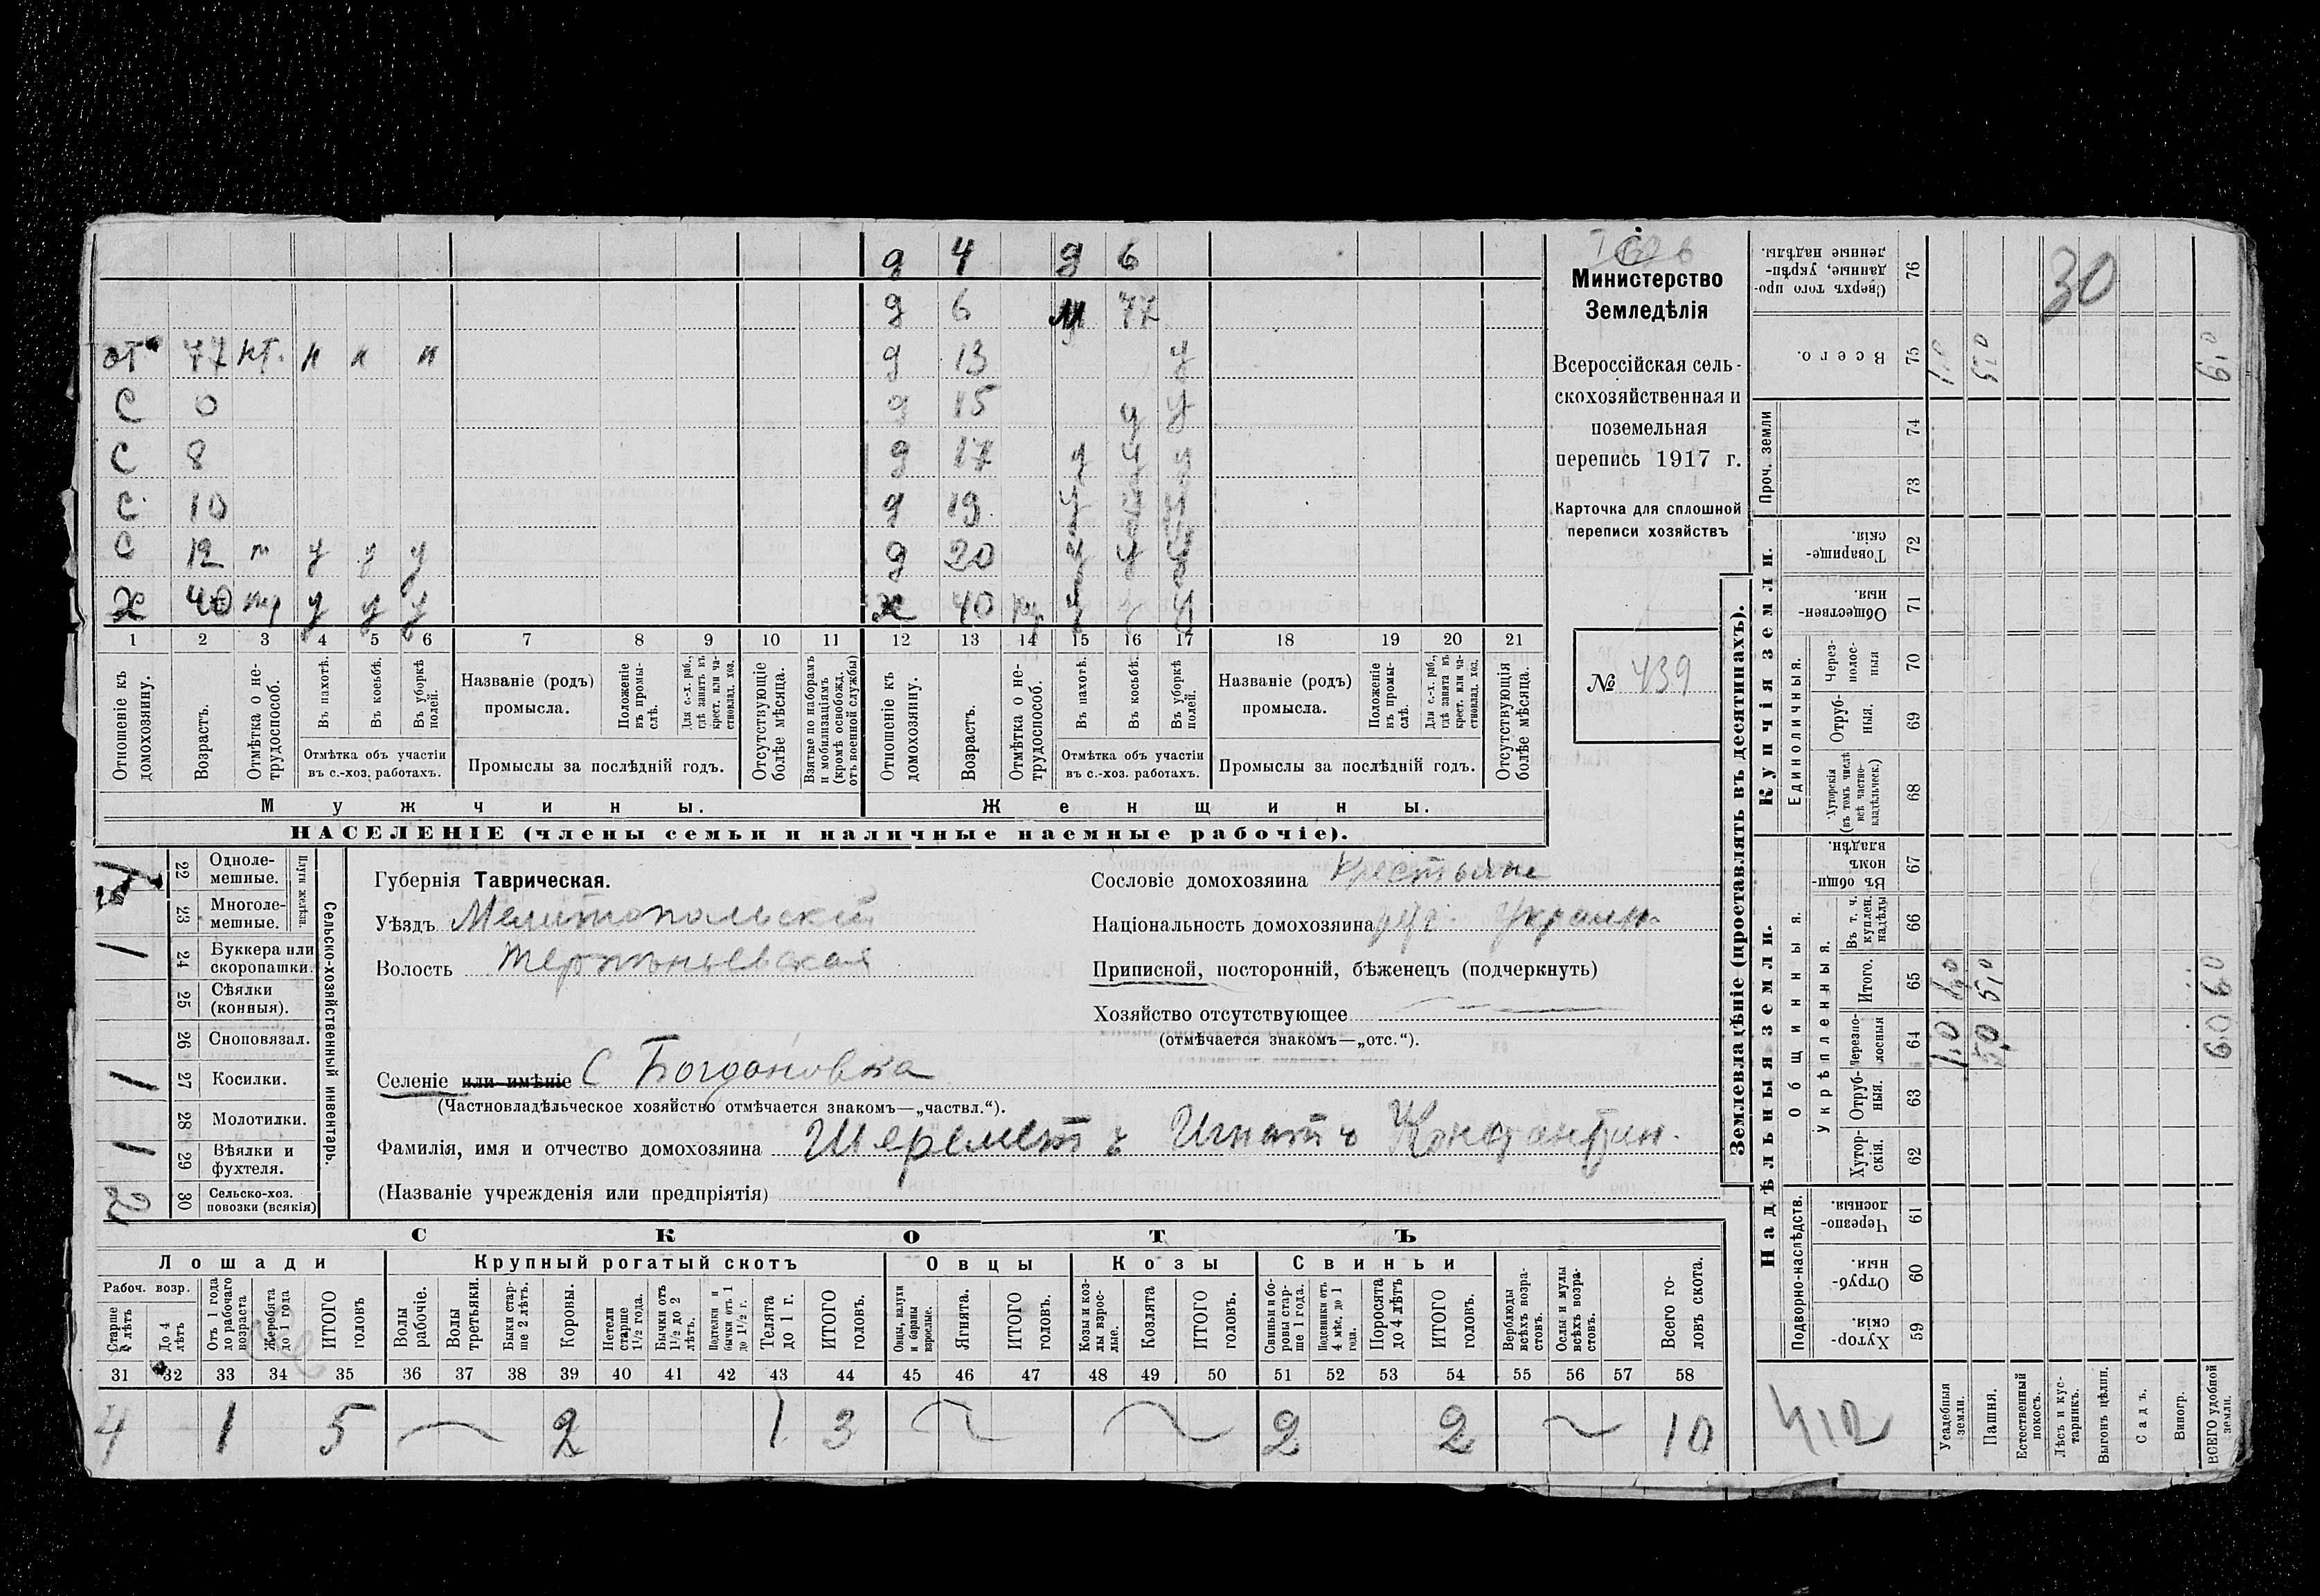 д 4 д 6
д 6 м 77
от 77 м м м д 13 у
С 0 д 15 у у
С 8 д 17 у у у
С 10 д 19 у у у
С 12 п у у у д 20 у у у
х 40 у у у х 40 у у у
1 2 3 4 5 6 7 8 9 10 11 12 13 14 15 16 17 18 19 20 21
Отношеніе къ домохозяину.
Возрастъ.
Отмѣтка о нетрудоспособ.
Въ пахотѣ.
Въ косьбѣ.
Въ уборкѣ полей.
Отмѣтка объ участіи
въ с.-хоз. работахъ.
Названіе (родъ)
промысла.
Положеніе въ промыслѣ.
Для с.-х. раб., гдѣ занятъ въ крест. или частновлад. хоз.
Промыслы за послѣдній годъ.
Отсутствующіе болѣе мѣсяца.
Взятые по наборамъ и мобилизаціямъ (кромѣ освобожд. отъ военной службы)
Отношеніе къ домохозяину.
Возрастъ.
Отмѣтка о нетрудоспособ.
Въ пахотѣ.
Въ косьбѣ.
Въ уборкѣ полей.
Отмѣтка объ участіи
въ с.-хоз. работахъ.
Названіе (родъ)
промысла.
Положеніе въ промыслѣ.
Для с.-х. раб., гдѣ занята въ крест. или частновлад. хоз.
Промыслы за послѣдній годъ.
Отсутствующія болѣе мѣсяца.
Мужчины. Женщины.
НАСЕЛЕНІЕ (члены семьи и наличные наемные рабочіе).
Министерство
Земледѣлія
Всероссійская сель-
скохозяйственная и
поземельная
перепись 1917 г.
Карточка для сплошной
переписи хозяйствъ
№ 439
22 Одноле-
мешные.
23 Многоле-
мешные.
Плуги желѣзн.
1 24 Буккера или
скоропашки.
25 Сѣялки
(конныя).
26 Сноповязал.
1 27 Косилки.
28 Молотилки.
1 29 Вѣялки и
фухтеля.
2 30 Сельско-хоз.
повозки (всякія)
Сельско-хозяйственный инвентарь.
Губернія Таврическая.
Уѣздъ Мелитопольскій
Волость Терпѣньевская
Селеніе или имѣніе С Богдановка
(Частновладѣльческое хозяйство отмѣчается знакомъ—„частвл.“).
Фамилія, имя и отчество домохозяина Шереметъ Игнатъ Константин.
(Названіе учрежденія или предпріятія)
Сословіе домохозяина Крестьяне
Національность домохозяина Украин.
Приписной, посторонній, бѣженецъ (подчеркнуть)
Хозяйство отсутствующее
(отмѣчается знакомъ—„отс.“).
СКОТЪ
Лошади Крупный рогатый скотъ Овцы Козы Свиньи
Рабоч. возр.
Старше 4 лѣтъ
До 4 лѣтъ
Отъ 1 года до рабочаго возраста
Жеребята до 1 года
ИТОГО головъ
Волы рабочіе.
Волы третьяки.
Быки старше 2 лѣтъ.
Коровы.
Нетели старше 1½ года.
Бычки отъ 1½ до 2 лѣтъ.
Подтелки и бычки отъ 1 до 1½ г.
Телята до 1 г.
ИТОГО головъ.
Овцы, валухи и бараны взрослые.
Ягнята.
ИТОГО головъ.
Козы и козлы взрослые.
Козлята
ИТОГО головъ.
Свиньи и боровы старше 1 года.
Подсвинки отъ 4 мѣс. до 1 года.
Поросята до 4 лѣтъ
ИТОГО головъ.
Верблюды всѣхъ возрастовъ.
Ослы и мулы всѣхъ возрастовъ.
Всего головъ скота.
31 32 33 34 35 36 37 38 39 40 41 42 43 44 45 46 47 48 49 50 51 52 53 54 55 56 57 58
4 1 5 2 1 3 2 2 10
Землевладѣніе (проставлять въ десятинахъ).
Надѣльныя земли. Купчія земли. Проч. земли
Подворно-наслѣдств. Общинныя. Укрѣпленныя. Единоличныя.
Хуторскія. 59
Отрубныя. 60
Черезполосныя 61
Хуторскія. 62
Отрубныя. 63
Черезполосныя 64 1,0 5,0 6,0
Итого. 65 1,0 5,0 6,0
Въ т. ч. куплен. надѣлы 66
Въ общинномъ владѣн. 67
Хуторскія (въ томъ числѣ всѣ частновладѣльческ.) 68
Отрубныя. 69
Черезполосныя 70
Общественныя. 71
Товарищескія. 72
73
74
Всего. 75 1,0 5,0 6,0
Сверхъ того проданные, укрѣпленные надѣлы. 76
30
412
Усадебныя земли.
Пашня.
Естественный покосъ.
Лѣсъ и кустарникъ.
Выгонъ цѣлин.
Садъ.
Виногр.
ВСЕГО удобной земли.